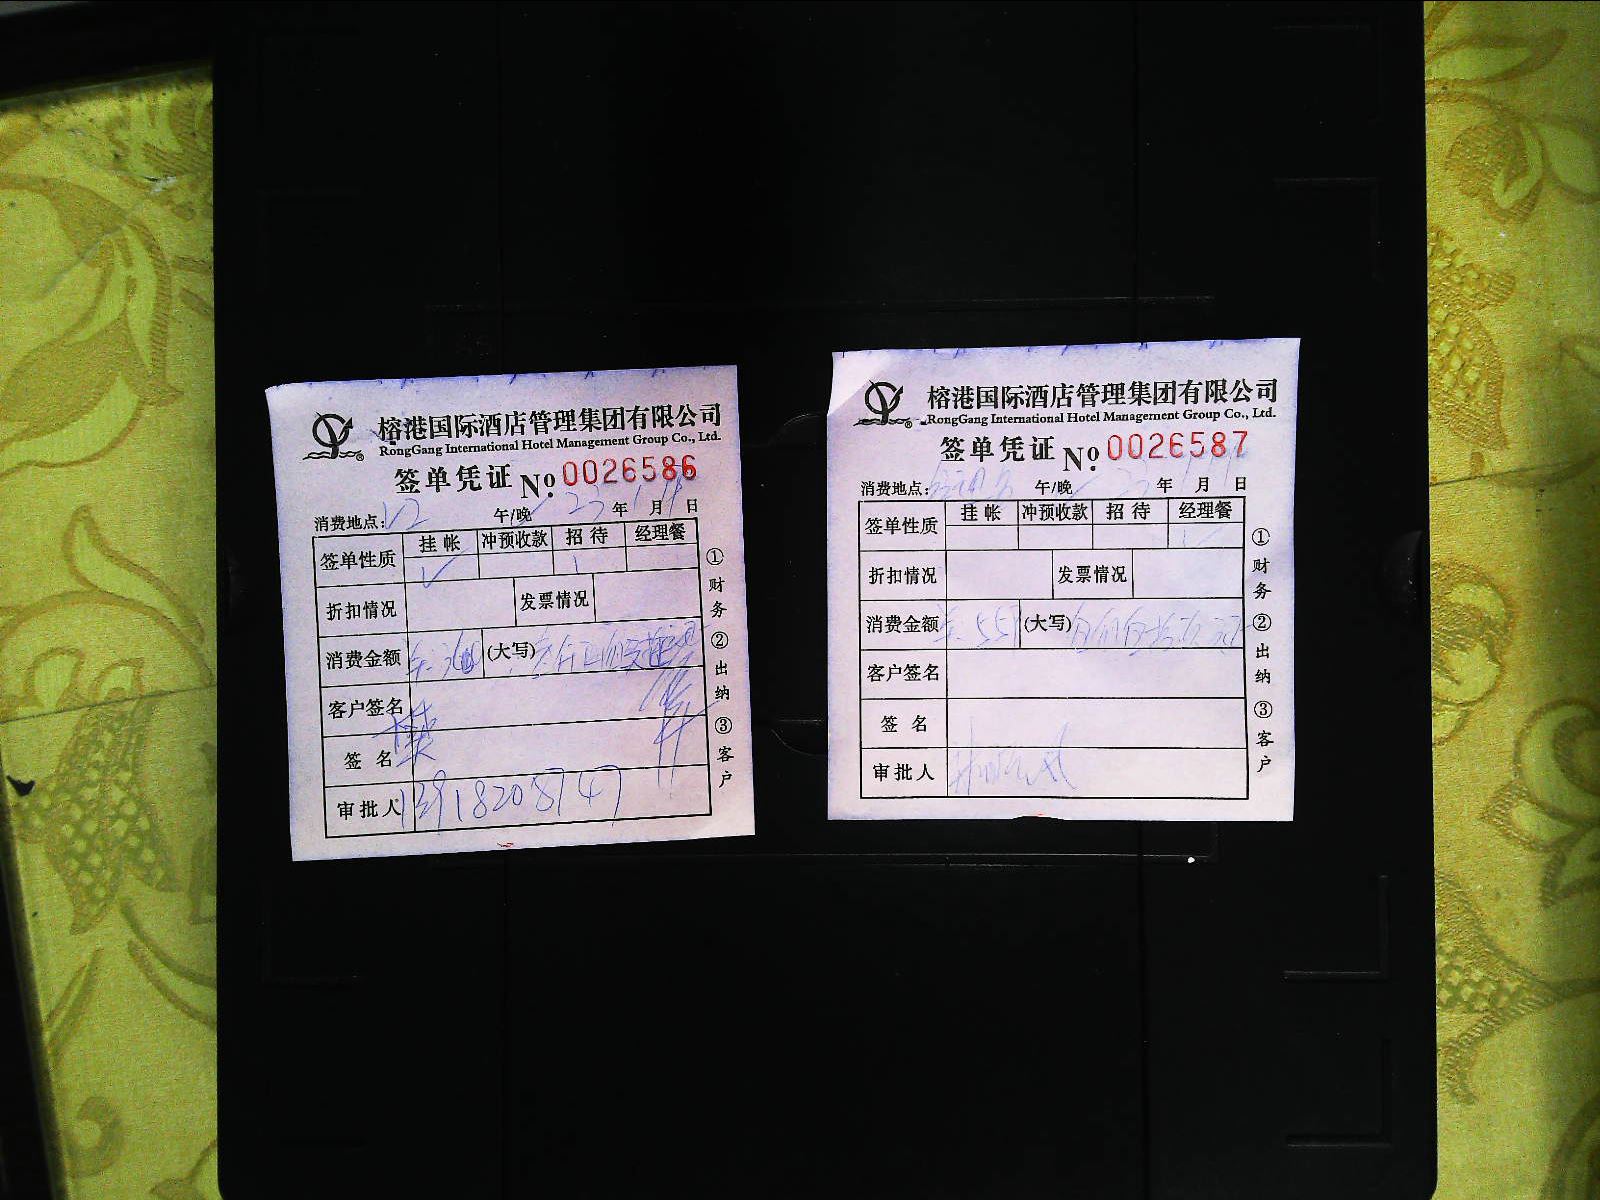 榕港国际酒店管理集团有限公司
RongGang International Hotel Management Group Co., Ltd.
签单凭证 No. 0026586
消费地点: V2 午/晚 23年1月18日
签单性质 挂帐 冲预收款 招待 经理餐
折扣情况 发票情况
消费金额 (大写)
客户签名
签名
审批人 13918208747
①财务 ②出纳 ③客户
榕港国际酒店管理集团有限公司
RongGang International Hotel Management Group Co., Ltd.
签单凭证 No. 0026587
消费地点: 午/晚 年 月 日
签单性质 挂帐 冲预收款 招待 经理餐
折扣情况 发票情况
消费金额 (大写)
客户签名
签名
审批人
①财务 ②出纳 ③客户